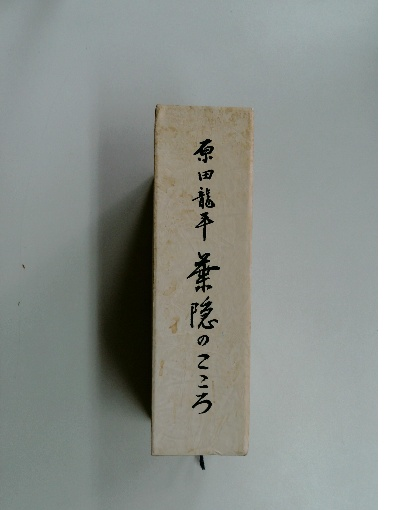 原田龍平 葉隠のこころ